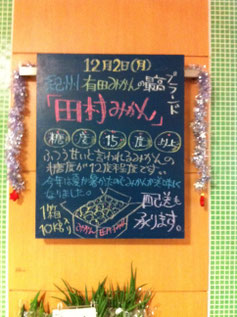 12月2日(月)
紀州 有田みかんの最高ブランド
「田村みかん」
糖度15度以上
ふつう甘いと言われるみかんの
糖度が12度程度です。
今年は夏が暑かったのでみかんが
なりました。
1箱
10kg
みかん
田村みかん
配送も
承ります。